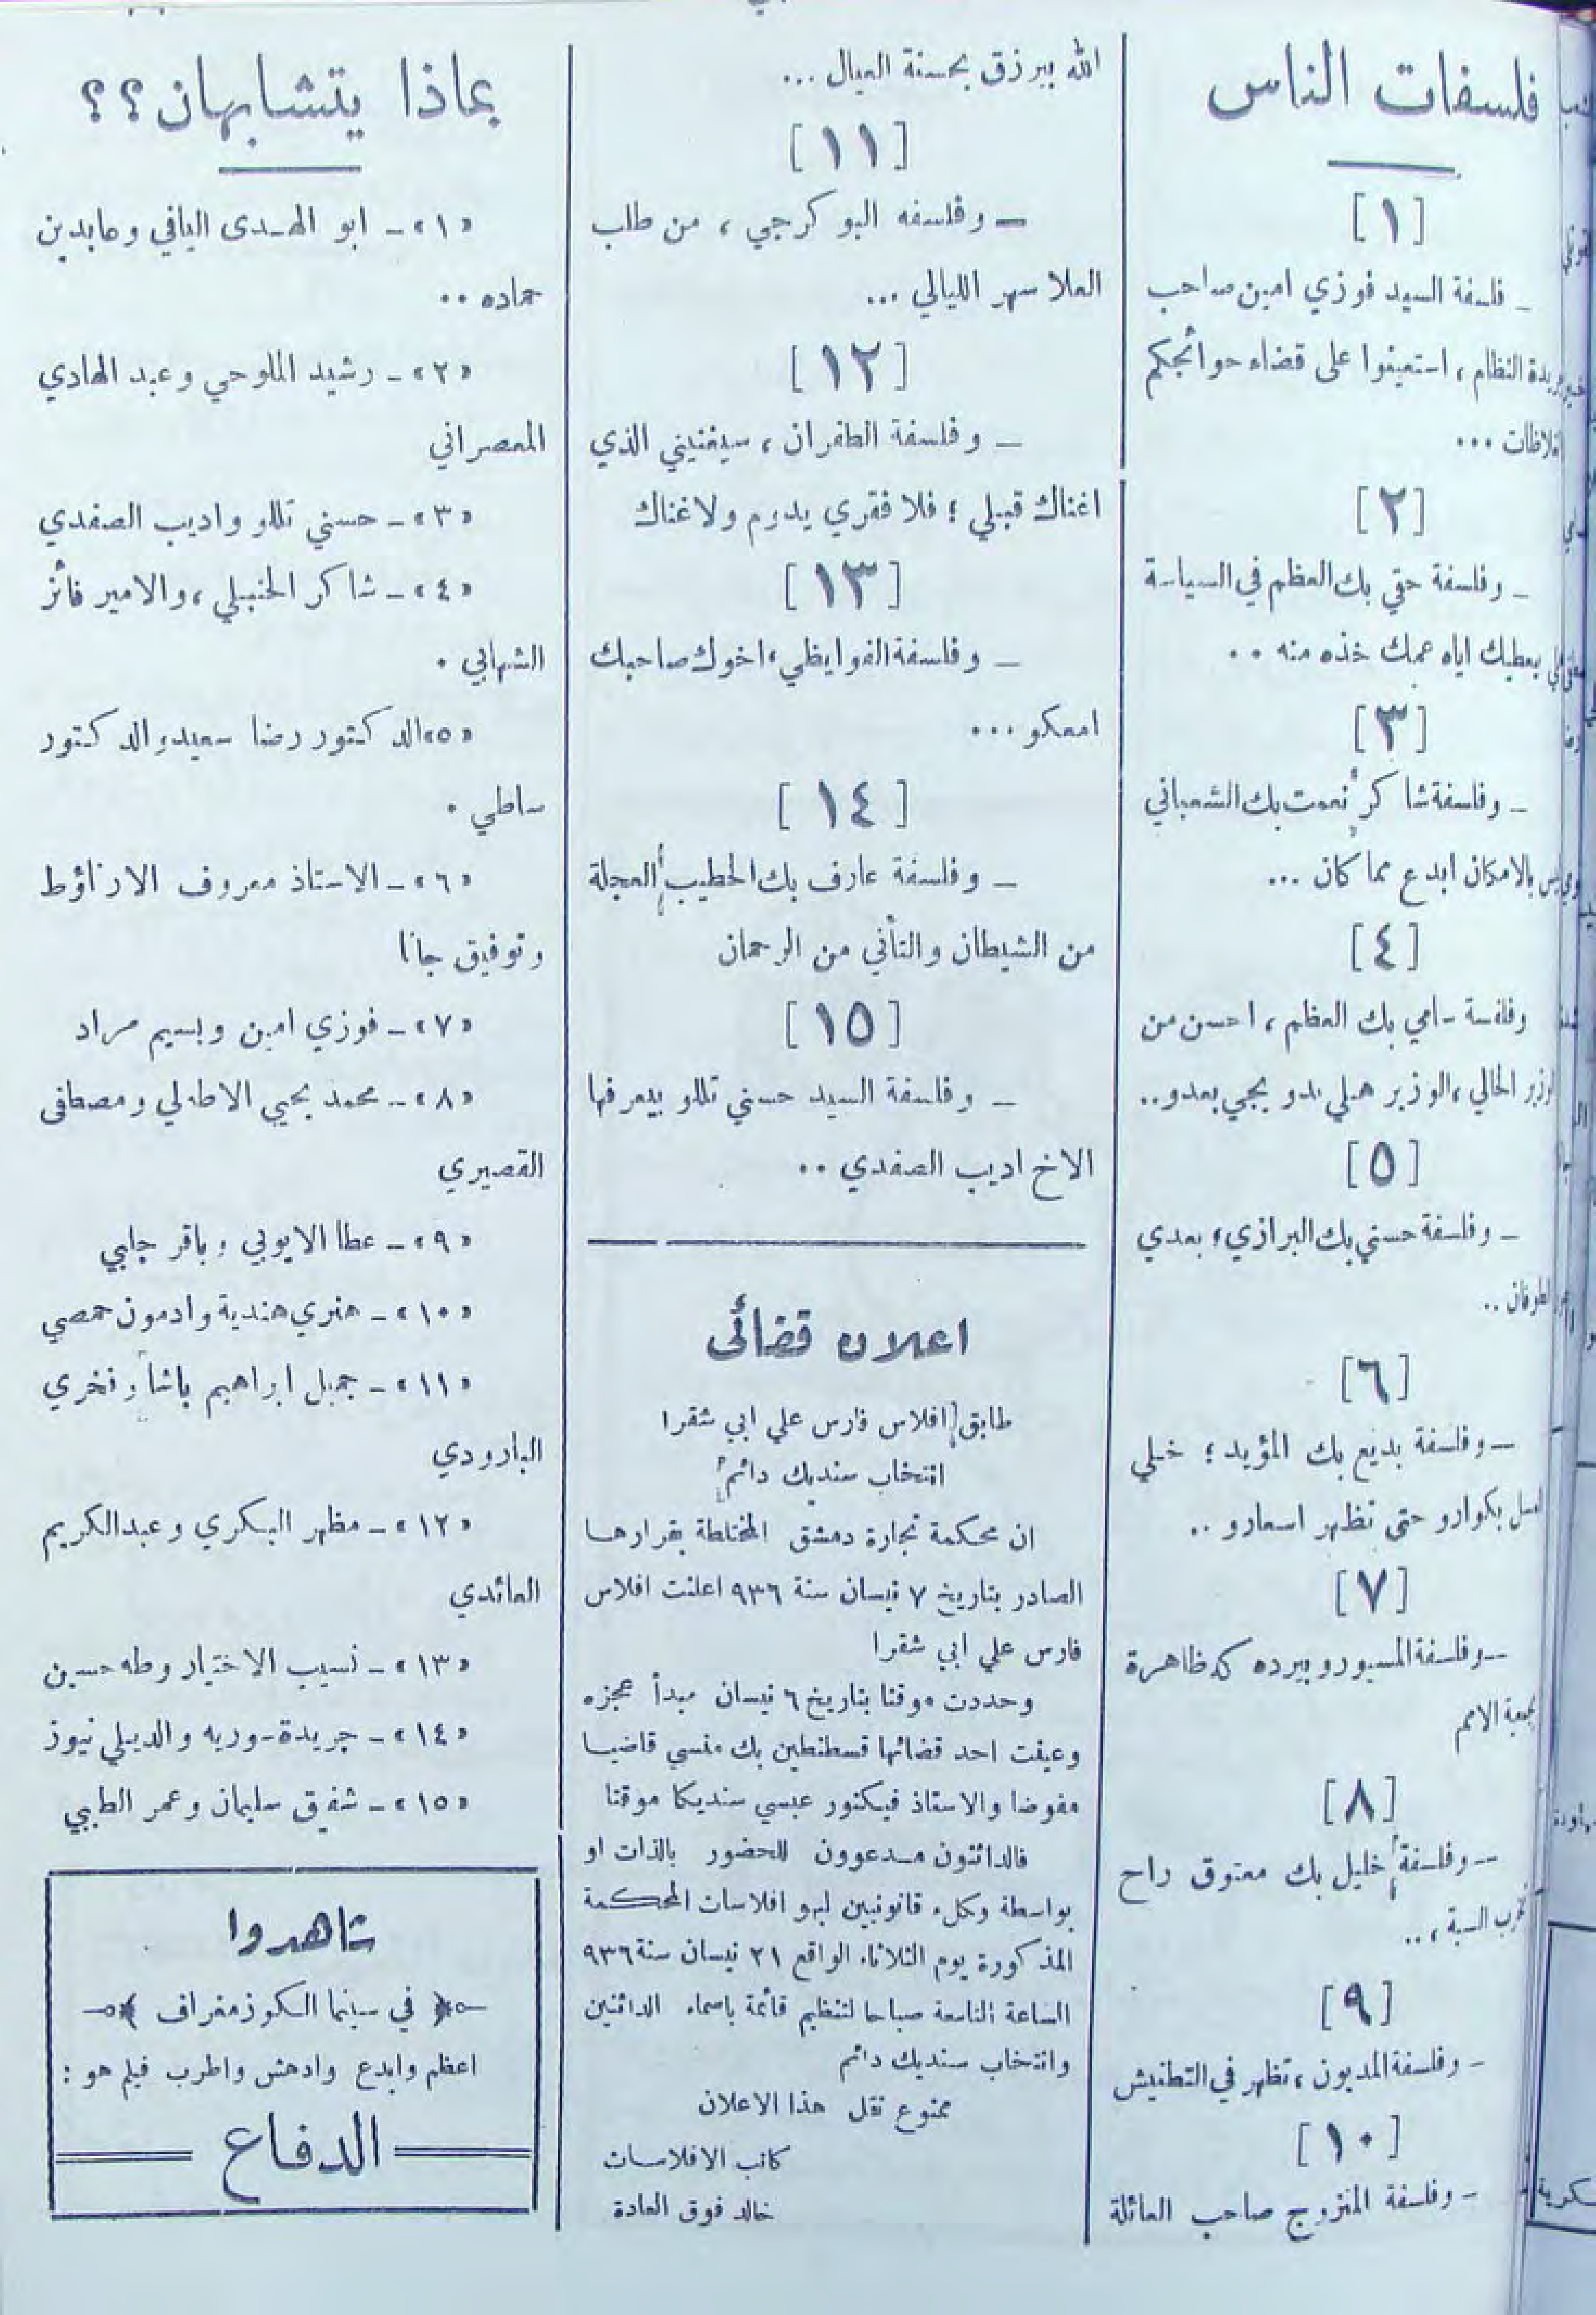 فلسفات الناس
[١]
ـ فلسفة السيد فوزي امين صاحب
جريدة النظام ، استعينوا على قضاء حوائجكم
...
[٢]
ـ وفلسفة حقي بك العظم في السياسة
يعطيك اياه عمك خذه منه ..
[٣]
ـ وفلسفة شاكر نعمت بك الشعباني
ليس بالامكان ابدع مما كان ...
[٤]
وفلفسة سامي بك العظم ، احسن من
الوزير الحالي ، الوزير هلي بدو يجي بعدو ..
[٥]
ـ وفلسفة حسني بك البرازي ، بعدي
الطوفان ..
[٦]
ـ وفلسفة بديع بك المؤيد ؛ خلي
العسل بكوارو حتى تظهر اسعارو ..
[٧]
ـ وفلسفة المسيورو بيرده كه ظاهرة
بجمعية الامم
[٨]
ـ وفلسفة خليل بك معتوق راح
تخرب السبة ، ..
[٩]
ـ وفلسفة المديون ، تظهر في التطنيش
[١٠]
ـ وفلسفة المتزوج صاحب العائلة
الله بيرزق بحسنة العيال ...
[١١]
ـ وفلسفه البوكرجي ، من طلب
العلا سهر الليالي ...
[١٢]
ـ وفلسفة الطفران ، سيغنيني الذي
اغناك قبلي ؛ فلا فقري يدوم ولا غناك
[١٣]
ـ وفلسفة الفوايظي ، اخوك صاحبك
امعكو ...
[١٤]
ـ وفلسفة عارف بك الخطيب العجلة
من الشيطان والتأني من الرحمان
[١٥]
ـ وفلسفة السيد حسني تللو بيعرفها
الاخ اديب الصفدي ..
اعلان قضائى
طابق افلاس فارس علي ابي شقرا
انتخاب سنديك دائم
ان محكمة تجارة دمشق المختلطة بقرارها
الصادر بتاريخ ٧ نيسان سنة ٩٣٦ اعلنت افلاس
فارس علي ابي شقرا
وحددت موقتا بتاريخ ٦ نيسان مبدأ عجزه
وعينت احد قضائها قسطنطين بك منسي قاضيا
مفوضا والاستاذ فيكتور عبسي سنديكا موقتا
فالدائنون مدعوون للحضور بالذات او
بواسطة وكلاء قانونيين لبهو افلاسات المحكمة
المذكورة يوم الثلاثاء الواقع ٢١ نيسان سنة ٩٣٦
الساعة التاسعة صباحا لتنظيم قائمة باسماء الدائنين
وانتخاب سنديك دائم
ممنوع نقل هذا الاعلان
كاتب الافلاسات
خالد فوق العادة
بماذا يتشابهان ؟؟
«١» ـ ابو الهدى اليافي وعابدين
حماده ..
«٢» ـ رشيد الملوحي وعبد الهادي
المعصراني
«٣» ـ حسني تللو واديب الصفدي
«٤» ـ شاكر الحنبلي ، والامير فائز
الشهابي .
«٥» الدكتور رضا سعيد والدكتور
ساطي .
«٦» ـ الاستاذ معروف الارناؤط
وتوفيق جانا
«٧» ـ فوزي امين وبسيم مراد
«٨» ـ محمد يحيي الاطه لي ومصطفى
القصيري
«٩» ـ عطا الايوبي وباقر جلبي
«١٠» ـ هنري هندية وادمون حمصي
«١١» ـ جميل ابراهيم باشا وفخري
البارودي
«١٢» ـ مظهر البكري وعبد الكريم
العائدي
«١٣» ـ نسيب الاختيار وطه حسين
«١٤» ـ جريدة سوريه والديلي نيوز
«١٥» ـ شفيق سليمان وعمر الطيبي
شاهدوا
في سينما الكوزمغراف
اعظم وابدع وادهش واطرب فيلم هو :
الدفاع